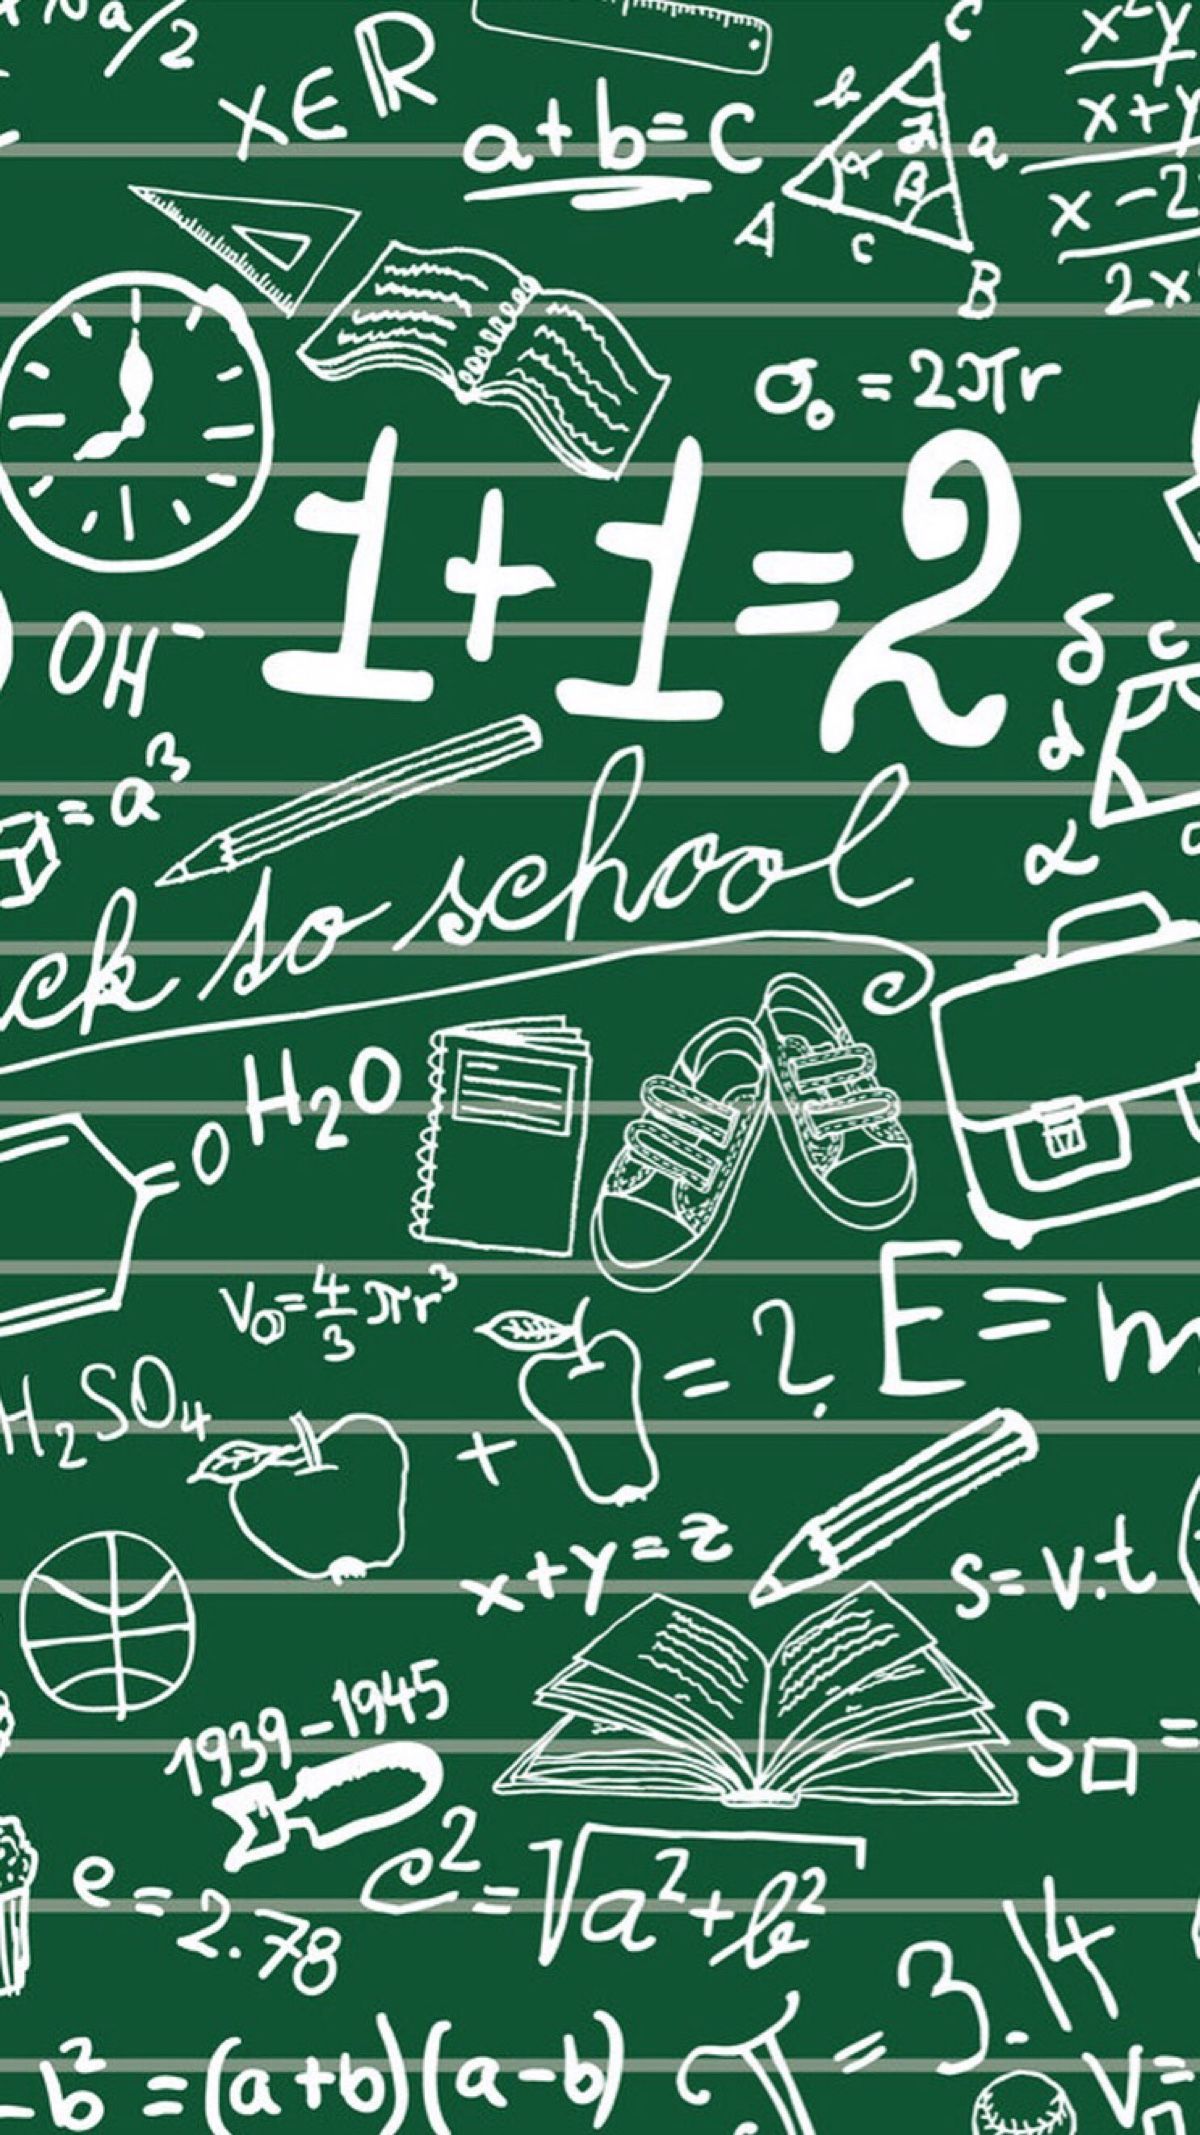 a/2
x∈ℝ
a+b=c
C
b
a
α
β
A
c
B
x+y
x-2
2x
σ₀ =2πr
1+1=2
OH⁻
δ c
d
α
=a³
ck so school
H₂O
=O
V₀=4/3 πr³
=?
E=m
H₂SO₄
+
x+y=z
s=v.t
1939-1945
S□=
e=2.78
c²=√a²+b²
π=3.14
-b²=(a+b)(a-b)
V□=